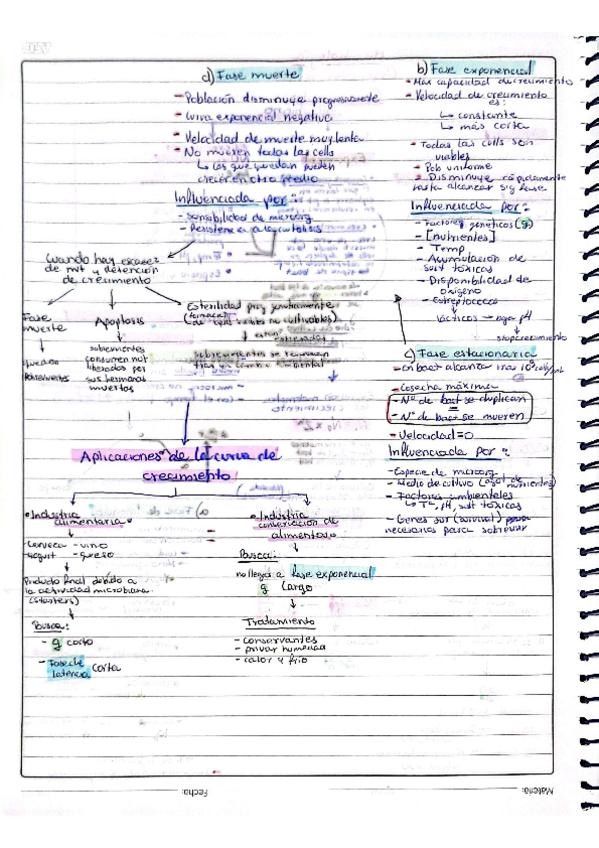 b) Fase exponencial
- Max capacidad de crecimiento
- Velocidad de crecimiento
es:
↳ constante
↳ más corta
- Todas las cells son
viables
- Pob uniforme
- Disminuye rápidamente
hasta alcanzar sig fase.
Influenciada por:
- Factores genéticos (g)
- [nutrientes]
- Temp
- Acumulación de
sust tóxicas
- Disponibilidad de
oxígeno
- Estreptococos
lácticos → baja pH
stop crecimiento
c) Fase estacionaria
- Cosecha máxima
- Nº de bact se duplican
=
- Nº de bact se mueren
- Velocidad = 0
Influenciada por:
- Especie de microorg
- Medio de cultivo
- Factores ambientales
↳ Tª, pH, sust tóxicas
- Genes sur (survival)
necesarios para sobrevivir
d) Fase muerte
- Población disminuye progresivamente
- Curva exponencial negativa
- Velocidad de muerte muy lenta
- No mueren todas las cells
↳ Los que quedan pueden
crecer en otro medio
Influenciada por:
- Sensibilidad de microorg
- Resistencia a la autolisis
Cuando hay escasez
de nut y detención
de crecimiento
Fase
muerte
Apoptosis
sobrevivientes
consumen nut
liberados por
sus hermanas
muertas
Esterilidad
no cultivables)
Aplicaciones de la curva de
crecimiento
• Industria
alimentaria
Cerveza - vino
yogurt - queso
Producto final debido a
la actividad microbiana
(starters)
Busca:
- g corto
- Fase de
latencia corta
• Industria
conservación de
alimentos
Busca:
no llegar a fase exponencial
g largo
Tratamiento
- conservantes
- privar humedad
- calor y frío
Fecha:
Materia: